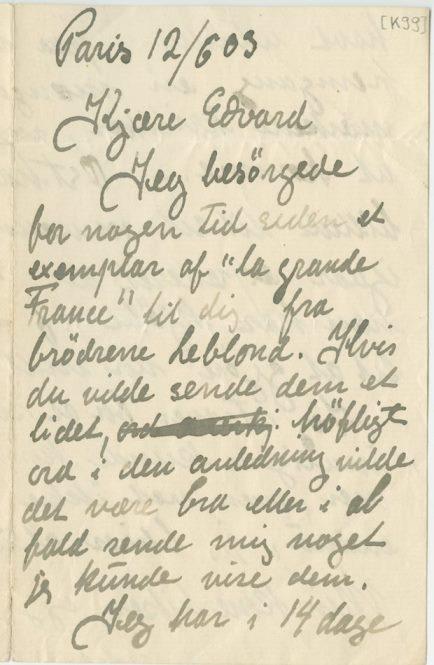 [K99]
Paris 12/6 03
Kjære Edvard
Jeg besörgede
for nogen tid siden et
exemplar af "la grande
France" til dig fra
brödrene Leblond. Hvis
du vilde sende dem et
lidet, höfligt
ord i den anledning vilde
det være bra eller i al
fald sende mig noget
jeg kunde vise dem.
Jeg har i 14 dage